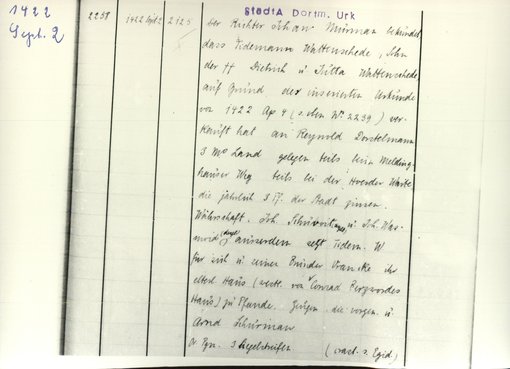 1422
Sept. 2
StadtA Dortm. Urk
2258 1422 Sept 2 2125
Der Richter Johan Murman bekundet
dass Tidemann Wattenschede, Sohn
der †† Dietrich u Jutta Wattenschede
auf Grund der inserierten Urkunde
von 1422 Ap 4 (s. oben Nº 2239) ver-
kauft hat an Reynold Dorstelmann
3 Mo Land gelegen teils beim Melding-
hauser Weg teils bei der Hoerder Warte
die jährlich 3 ₰. der Stadt zinsen.
Währschaft. Joh. u Joh. War-
ausserdem setzt Tidem. W
für sich u seinen Bruder ihr
elterl Haus (Conrad Berswordes
Haus) zu Pfande. Zeugen die vorgen. u
Arnd Schürman
Or. Pgn. 3 Siegelstreifen (crast. s. Egid)